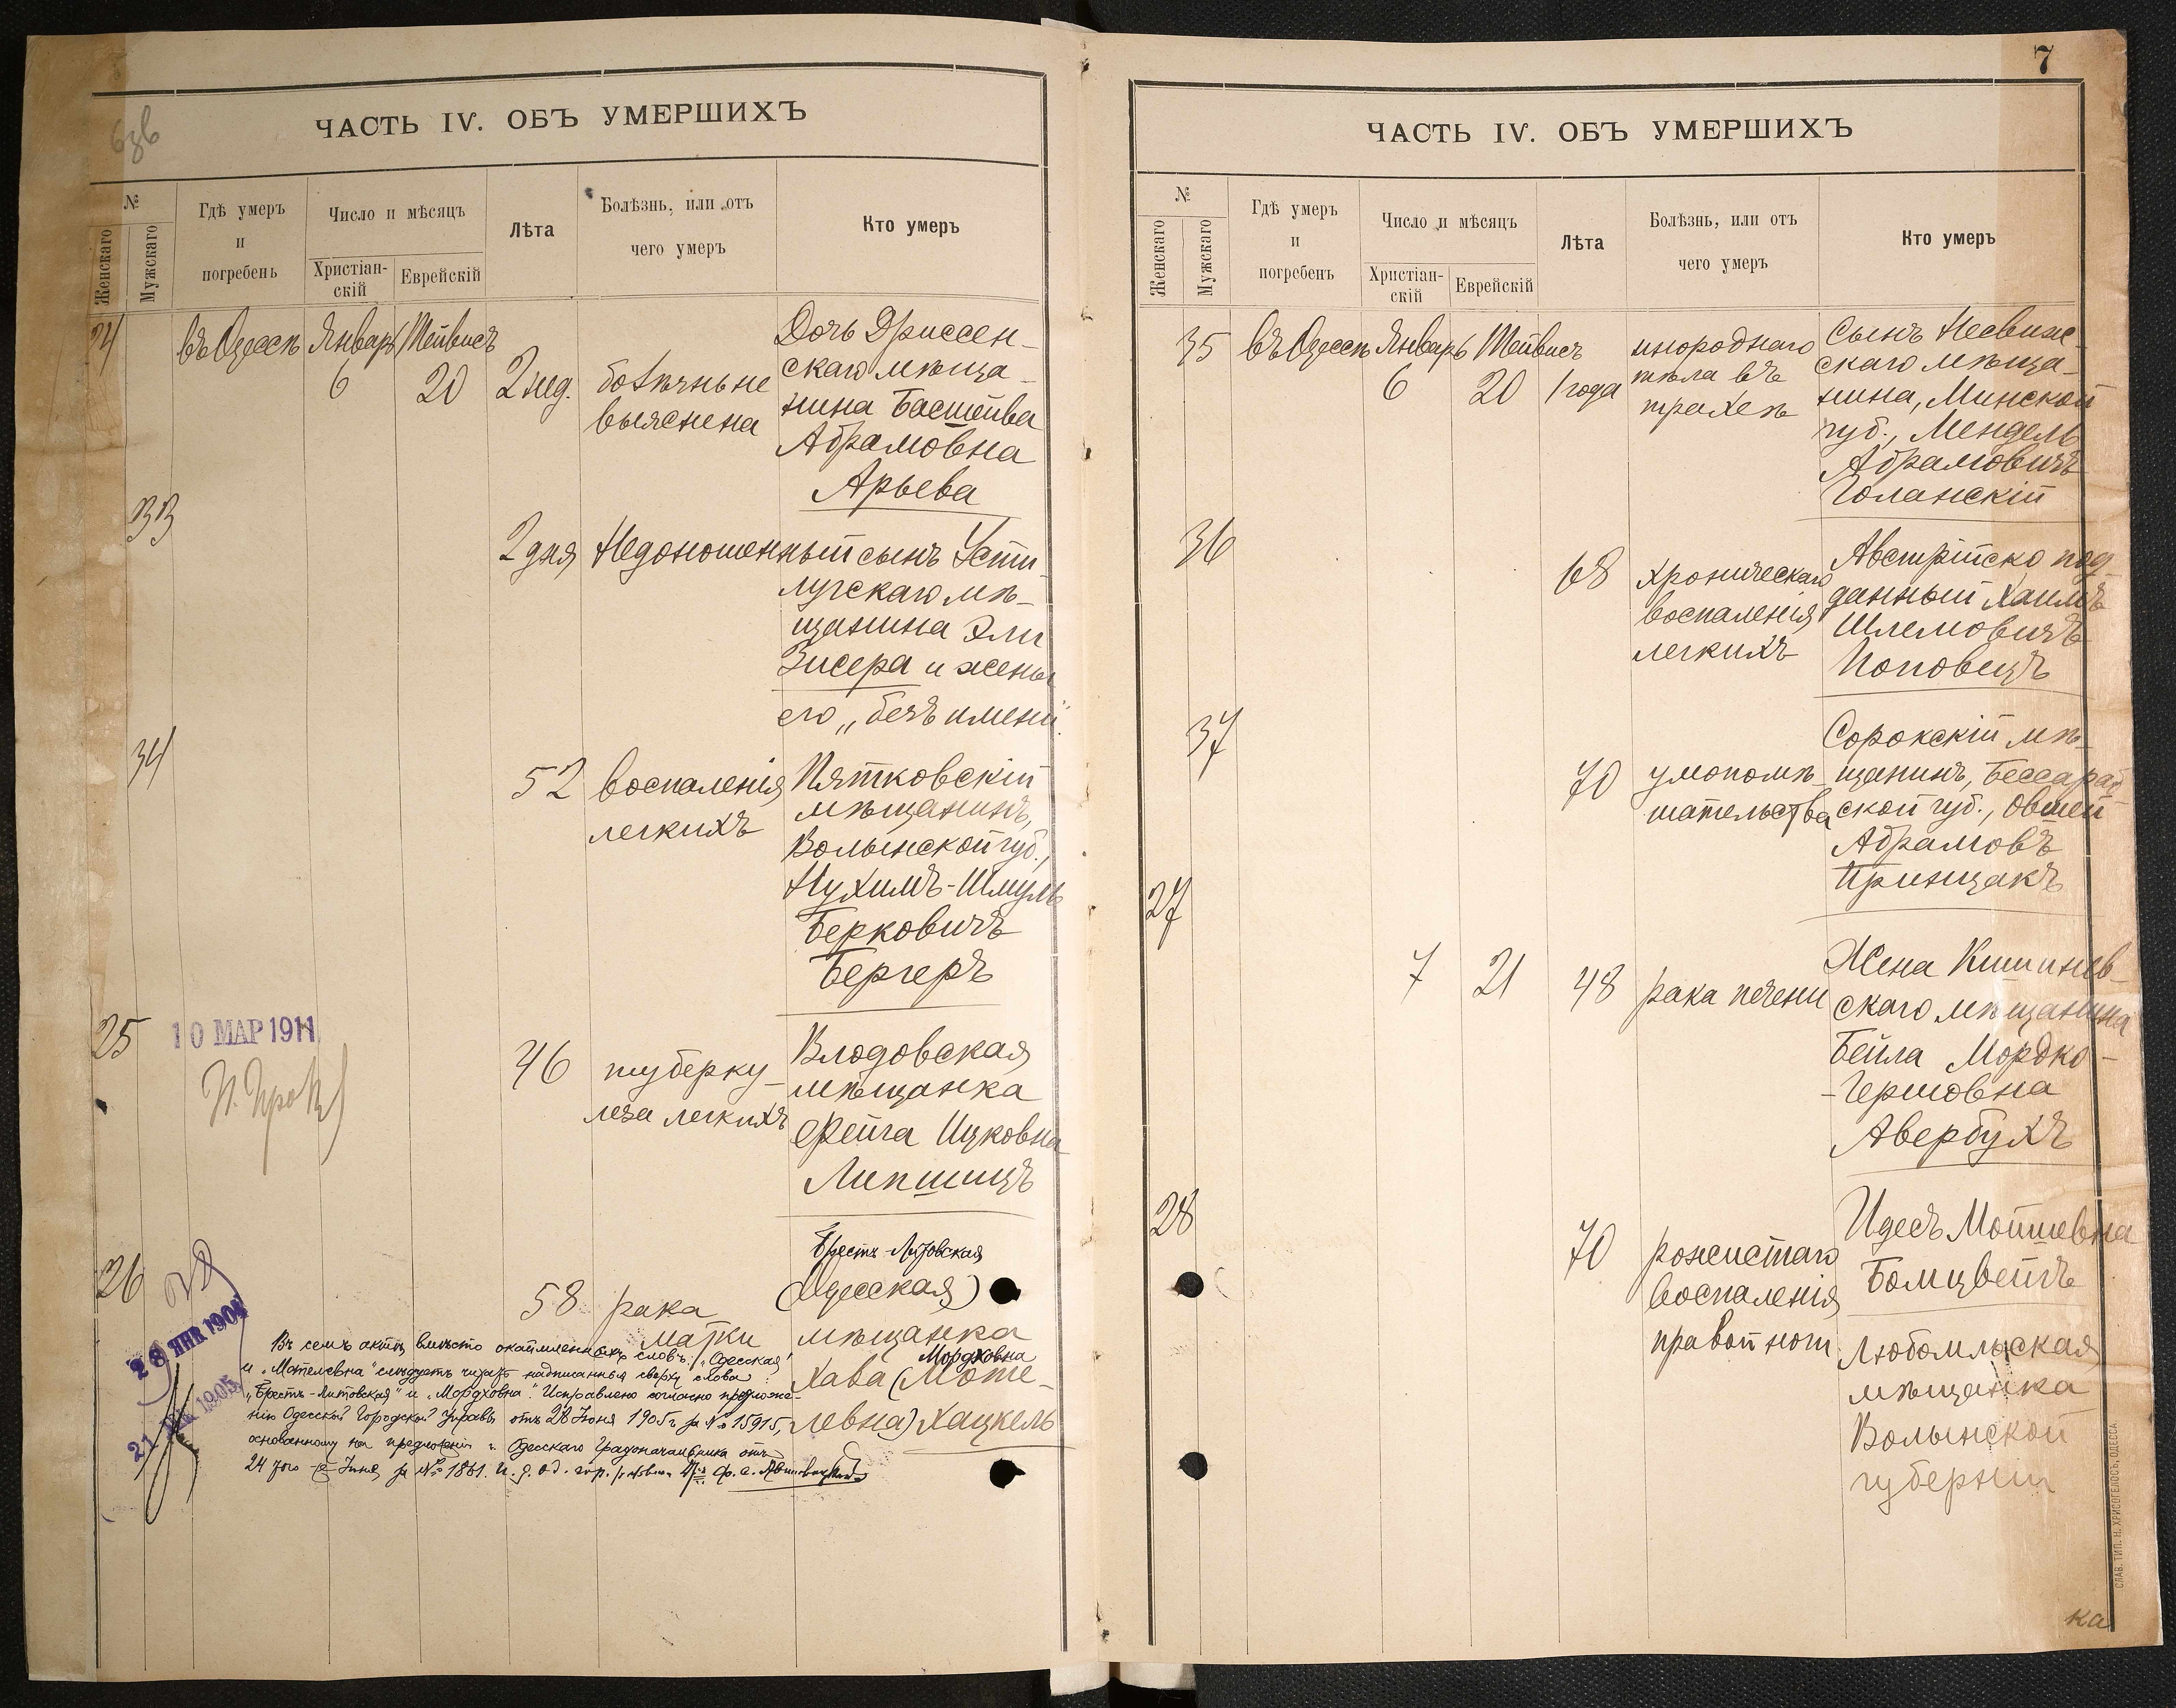 ЧАСТЬ IV. ОБЪ УМЕРШИХЪ
№
Женскаго
Мужскаго
Гдѣ умеръ
и
погребенъ
Число и мѣсяцъ
Христіан-
скій
Еврейскій
Лѣта
Болѣзнь, или отъ
чего умеръ
Кто умеръ
24
въ Одессѣ
Январь
6
Тейвисъ
20
2 нед.
болѣзнь не
выяснена
Дочь Дриссен-
скаго мѣща-
нина Бастейва
Абрамовна
Арьева
33
2 дня
Недоношенный сынъ Усти-
лугскаго мѣ-
щанина Эли
Зисера и жены
его „безъ имени“
34
52
воспаленія
легкихъ
Пятковскій
мѣщанинъ,
Волынской губ.,
Нухимъ-Шмуль
Берковичъ
Бергеръ
25
10 МАР 1911
46
туберку-
леза легкихъ
Влодовская
мѣщанка
Фейга Ицковна
Липшицъ
26
28 ЯНВ 1904
21 1905
58
рака
матки
Брестъ-Литовская
(Одесская)
мѣщанка
Мордховна
Хава (Моте-
левна) Хацкель
Въ семъ актѣ вмѣсто окаймленныхъ словъ: „Одесская“
и „Мотелевна“ слѣдуетъ читать надписанныя сверху слова:
„Брестъ-Литовская“ и „Мордховна“. Исправлено согласно предложе-
нію Одесской Городской Управы отъ 28 Іюня 1905 г. за № 15915,
основанному на предложеніи г. Одесскаго Градоначальника отъ
24 того же Іюня за № 1861. И. д. Од. гор.
7
ЧАСТЬ IV. ОБЪ УМЕРШИХЪ
№
Женскаго
Мужскаго
Гдѣ умеръ
и
погребенъ
Число и мѣсяцъ
Христіан-
скій
Еврейскій
Лѣта
Болѣзнь, или отъ
чего умеръ
Кто умеръ
35
въ Одессѣ
Январь
6
Тейвисъ
20
1 года
инороднаго
тѣла въ
трахеѣ
Сынъ Несвиж-
скаго мѣща-
нина, Минской
губ., Мендель
Абрамовичъ
Голанскій
36
68
хроническаго
воспаленія
легкихъ
Австрійско под-
данный Хаимъ
Шлемовичъ
Поповецъ
37
70
умопомѣ-
шательства
Сорокскій мѣ-
щанинъ, Бессараб
ской губ., Овшей
Абрамовъ
Принцакъ
27
7
21
48
рака печени
Жена Кишинев-
скаго мѣщанина
Бейла Мордко-
-Гершовна
Авербухъ
28
70
рожистаго
воспаленія
правой ноги
Идесъ Мошевна
Бомцвейгъ
Любомльская
мѣщанка
Волынской
губерніи
СЛАВ. ТИП. Н. ХРИСОГЕЛОСЪ, ОДЕССА.
ка